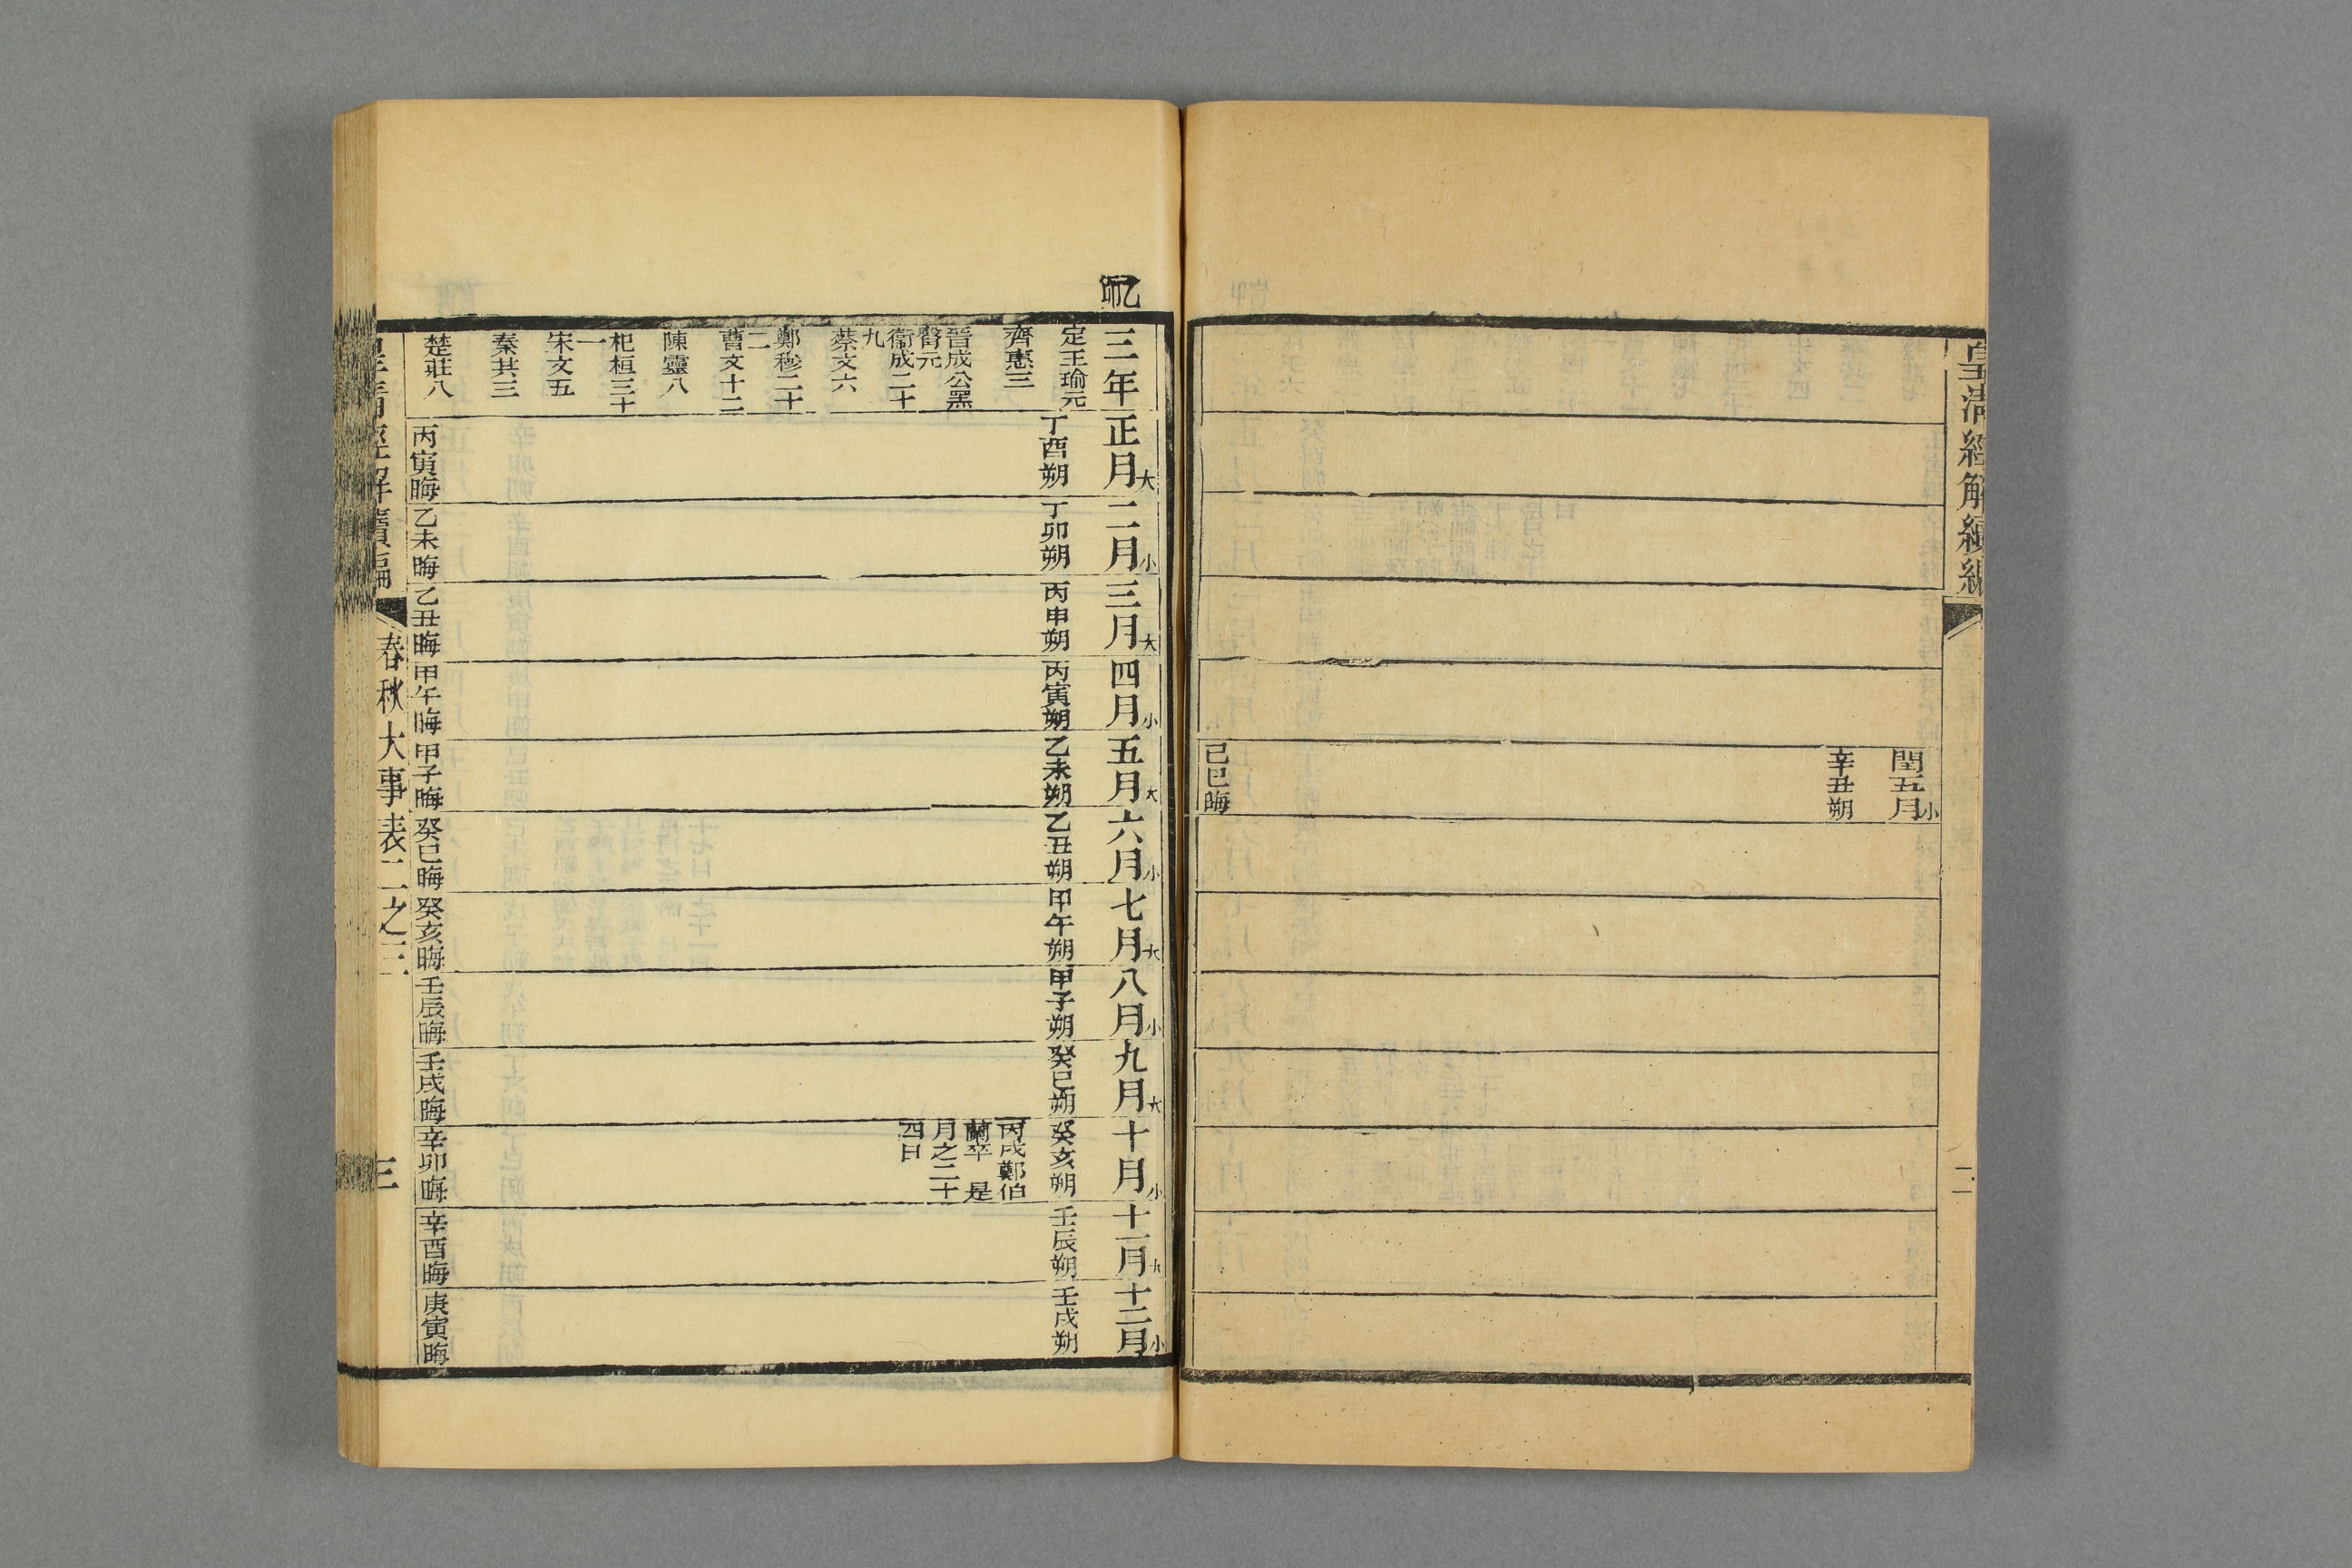 皇淸經解續編
二
閏五月小
辛丑朔
己巳晦
乙卯
三年
定王瑜元
齊惠三
晉成公黑
臀元
衞成二十
九
蔡文六
鄭穆二十
二
曹文十二
陳靈八
杞桓三十
一
宋文五
秦共三
楚莊八
正月大
丁酉朔
丙寅晦
二月小
丁卯朔
乙未晦
三月大
丙申朔
乙丑晦
四月小
丙寅朔
甲午晦
五月大
乙未朔
甲子晦
六月小
乙丑朔
癸巳晦
七月大
甲午朔
癸亥晦
八月小
甲子朔
壬辰晦
九月大
癸巳朔
壬戌晦
十月小
癸亥朔
丙戌鄭伯
蘭卒 是
月之二十
四日
辛卯晦
十一月大
壬辰朔
辛酉晦
十二月小
壬戌朔
庚寅晦
皇淸經解續編
春秋大事表二之三
三